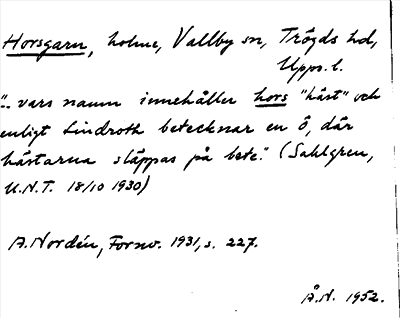 Horsgarn, holme, Vallby sn, Trögds hd,
Upps. l.
"-- vars namn innehåller hors "häst" och
enligt Lindroth betecknar en ö, där
hästarna släppas på bete." (Sahlgren,
U.N.T. 18/10 1930)
A. Nordén, Fornv. 1931, s. 227.
Å.N. 1952.